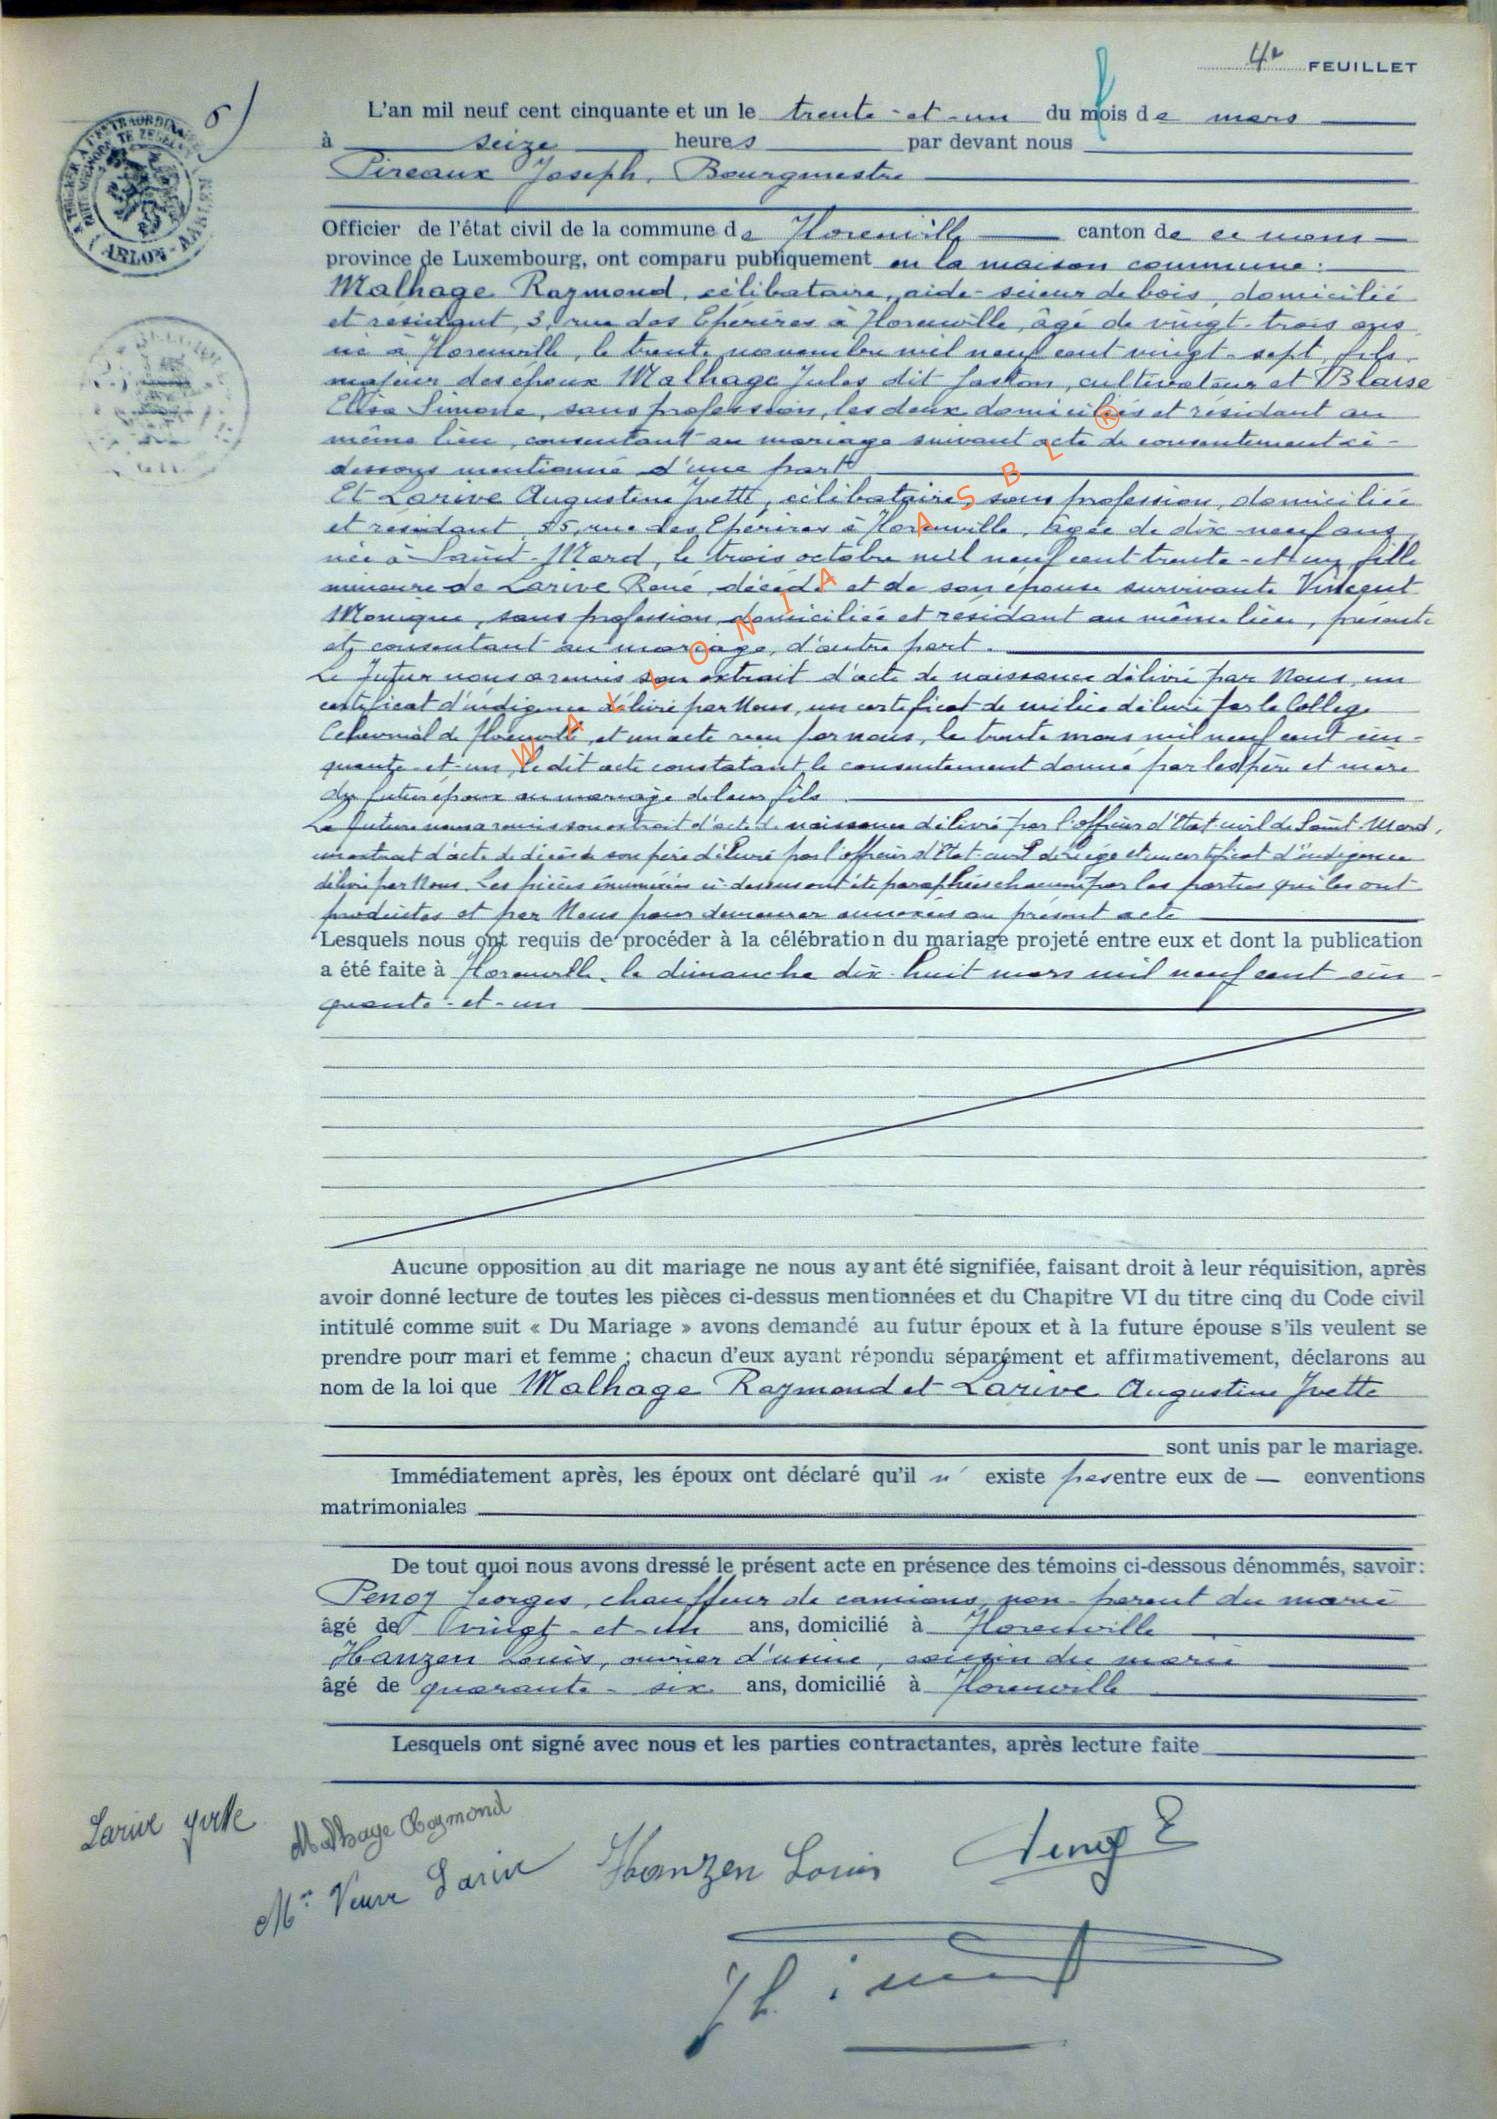 4e FEUILLET
6)
L'an mil neuf cent cinquante et un le trente-et-un du mois de mars
à seize heures par devant nous
Pireaux Joseph, Bourgmestre
Officier de l'état civil de la commune de Florenville canton de ce nom
province de Luxembourg, ont comparu publiquement en la maison commune:
Malhage Raymond, célibataire, aide-scieur de bois, domicilié
et résidant, 3, rue des Epérires à Florenville, âgé de vingt-trois ans
né à Florenville, le trente novembre mil neuf cent vingt-sept, fils
majeur des époux Malhage Jules dit Gaston, cultivateur et Blaise
Elisa Simone, sans profession, les deux domiciliés et résidant au
même lieu, consentant au mariage suivant acte de consentement ci-
dessous mentionné d'une part
Et Larive Augustine Yvette, célibataire, sans profession, domiciliée
et résidant, 55, rue des Epérires à Florenville, âgée de dix-neuf ans,
née à Saint-Mard, le trois octobre mil neuf cent trente-et-un, fille
mineure de Larive René, décédé et de son épouse survivante Vincent
Monique, sans profession, domiciliée et résidant au même lieu, présente
et consentant au mariage, d'autre part.
Le futur nous a remis son extrait d'acte de naissance délivré par Nous, un
certificat d'indigence délivré par Nous, un certificat de milice délivré par le Collège
Echevinal de Florenville, et un acte reçu par nous, le trente mars mil neuf cent cin-
quante-et-un, le dit acte constatant le consentement donné par les père et mère
du futur époux au mariage de leur fils
La future nous a remis son extrait d'acte de naissance délivré par l'officier d'Etat-civil de Saint-Mard,
un extrait d'acte de décès de son père délivré par l'officier d'Etat-civil de Liège et un certificat d'indigence
délivré par Nous. Les pièces énumérées ci-dessus ont été paraphées chacune par les parties qui les ont
produites et par Nous pour demeurer annexées au présent acte
Lesquels nous ont requis de procéder à la célébration du mariage projeté entre eux et dont la publication
a été faite à Florenville, le dimanche dix-huit mars mil neuf cent cin-
quante-et-un
Aucune opposition au dit mariage ne nous ayant été signifiée, faisant droit à leur réquisition, après
avoir donné lecture de toutes les pièces ci-dessus mentionnées et du Chapitre VI du titre cinq du Code civil
intitulé comme suit « Du Mariage » avons demandé au futur époux et à la future épouse s'ils veulent se
prendre pour mari et femme ; chacun d'eux ayant répondu séparément et affirmativement, déclarons au
nom de la loi que Malhage Raymond et Larive Augustine Yvette
sont unis par le mariage.
Immédiatement après, les époux ont déclaré qu'il n' existe pas entre eux de — conventions
matrimoniales
De tout quoi nous avons dressé le présent acte en présence des témoins ci-dessous dénommés, savoir:
Penoy Georges, chauffeur de camions, non-parent du marié
âgé de vingt-et-un ans, domicilié à Florenville
Hanzen Louis, ouvrier d'usine, cousin du marié
âgé de quarante-six ans, domicilié à Florenville
Lesquels ont signé avec nous et les parties contractantes, après lecture faite
Larive Yvette
Malhage Raymond
Me Veuve Larive
Hanzen Louis
WALLONIA ASBL ®
ARLON - AARLEN